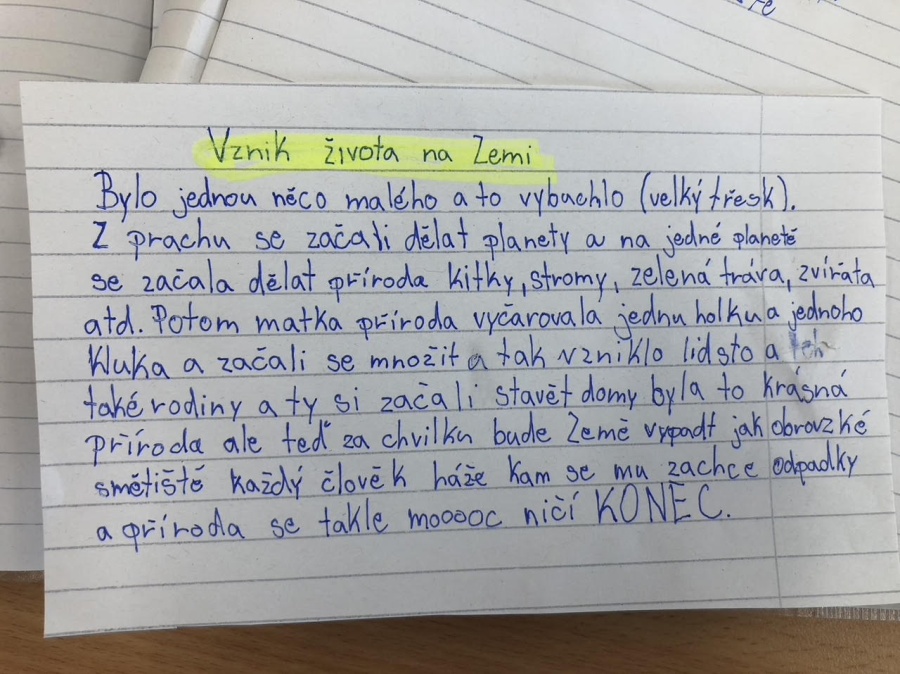 Vznik života na Zemi
Bylo jednou něco malého a to vybuchlo (velký třesk).
Z prachu se začali dělat planety a na jedné planetě
se začala dělat příroda kitky, stromy, zelená tráva, zvířata
atd. Potom matka příroda vyčarovala jednu holku a jednoho
kluka a začali se množit a tak vzniklo lidsto a
také rodiny a ty si začali stavět domy byla to krásná
příroda ale teď za chvilku bude Země vypadt jak obrovzké
smětiště každý člověk háže kam se mu zachce odpadky
a příroda se takle moooc ničí KONEC.